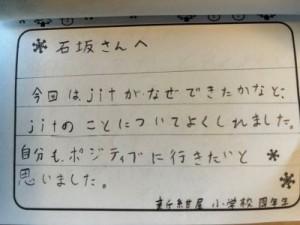 石坂さんへ
今回は、jitがなぜできたかなと、
jitのことについてよくしれました。
自分も、ポジティブに行きたいと
思いました。
新紺屋小学校四年生